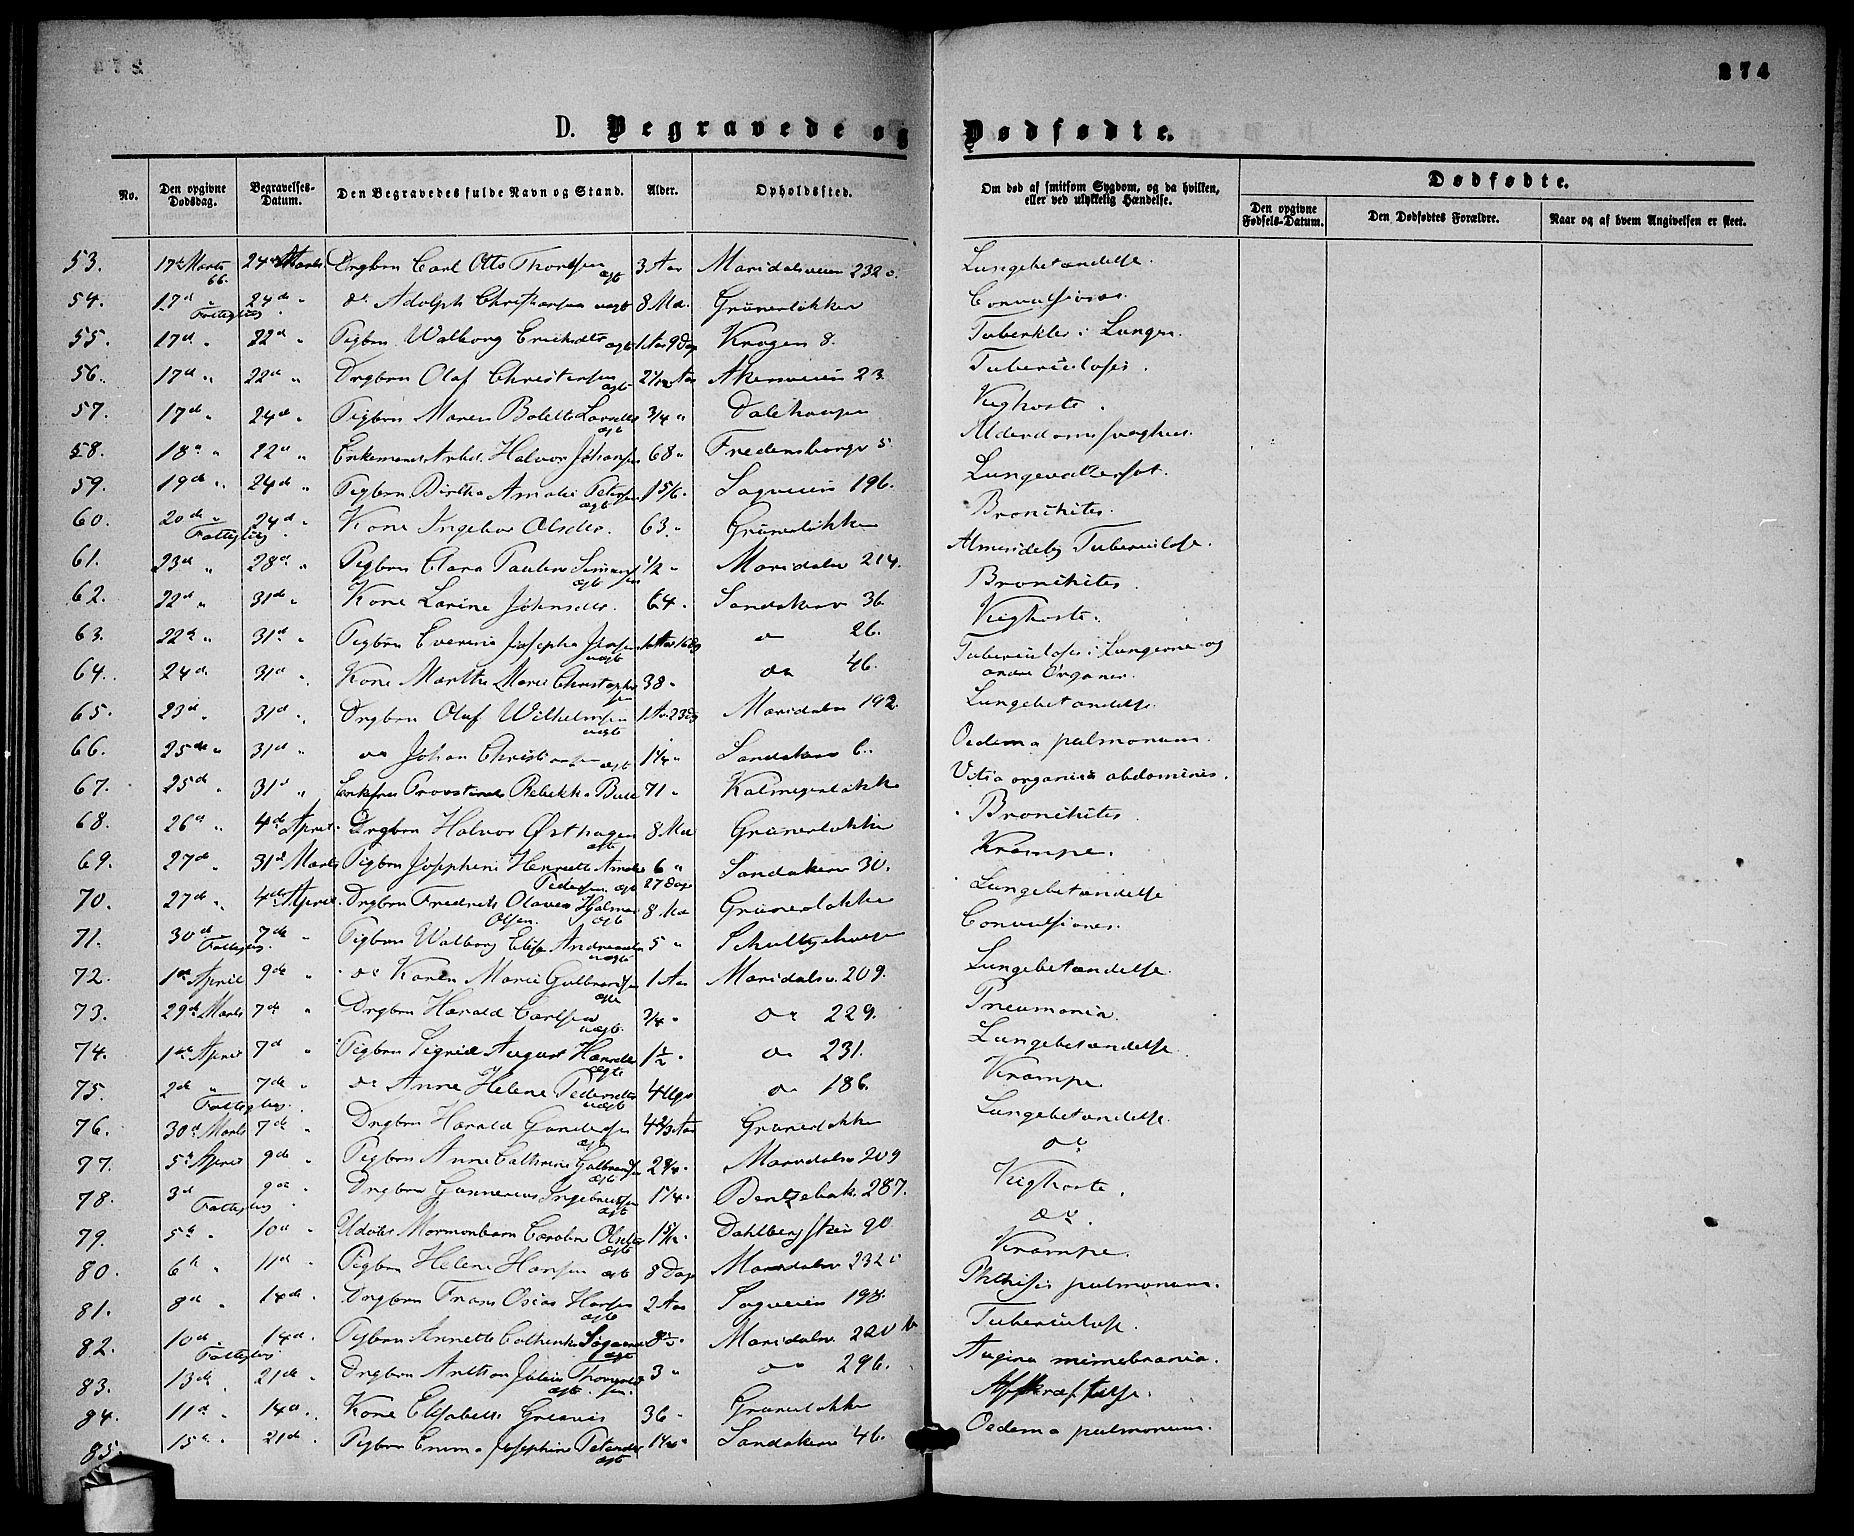 274
D. Begravede og Dødfødte.
No. Den opgivne Dødsdag. Begravelses-Datum. Den Begravedes fulde Navn og Stand. Alder. Opholdssted. Om død af smitsom Sygdom, og da hvilken, eller ved ulykkelig Hændelse. Dødfødte.
Den opgivne Fødsels-Datum. Den Dødfødtes Forældre. Naar og af hvem Angivelsen er skeet.
53. 17de Marts 66. 24de Marts Drgbrn Carl Otto Thorlsen ægte 3 Aar Maridalsveien 232 c. Lungebetændelse.
54. 17d " Fattigbeg. 24de " do Adolph Christiansen uægte 8 Md. Grünerløkken Convulsiones.
55. 17d " 22d " Pigbrn Walborg Ericksdtr ægte 1 Aar 9 Dage Krogen 8. Tuberkler i Lungen.
56. 17d " 22d " Drgbrn Olaf Christensen ægte Aar Akersveien 23. Tuberculosis.
57. 17d " 24d " Pigbrn Maren Bolette Larsdtr ægte 3/4 " Dalehougen Kighoste.
58. 18d " 22d " Enkemand Arbd. Halvor Johansen 68 " Fredensborgv 5 Alderdomssvaghed.
59. 19de " 24de " Pigbrn Birthe Amalie Petersen ægte 1 5/6. Sagveien 196. Lungevattersot.
60. 20de " Fattigbeg. 24d " Kone Ingebor Olsdtr. 63. Grünerløkken Bronchites.
61. 23d " 28de " Pigbrn Clara Pauline Simensen ægte 1/2 " Maridalsv 214. Almindelig Tuberculose.
62. 22d " 31d " Kone Larine Johnsdtr. 64. Sandakerv 36 Bronchites.
63. 22d " 31d " Pigbrn Everine Josepha Jensen uægte 1 Aar 16 Dg do 26. Kighoste.
64. 24d " 31d " Kone Marthe Marie Christophersen 38 " do 46. Tuberculosis i Lungerne og andre Organer.
65. 23d " 31d " Drgbrn Olaf Wilhelmsen uægte 1 Aar 23 Dg Maridalsv 192. Lungebetændelse.
66. 25de " 31d " do Johan Christiansen ægte 1 1/4 " Sandakerv 6. Oedema pulmonum.
67. 25d " 31d " Enkefrue Provstinde Rebekka Bull 71 " Kalmeyerløkke Vitia organica abdominis.
68. 26d " 4de April. Drgbrn Halvor Østhagen ægte 8 Md Grünerløkke Bronchites.
69. 27d " 31d Marts Pigbrn Josephine Henriette Amalie Pedersen ægte 6 " 27 Dage Sandakerv 30. Krampe.
70. 27de " 4de April. Drgbrn Fredrik Olaves Hjalmar Olsen. ægte 8 Md Grünerløkke Lungebetændelse
71. 30d Fattigbeg. 7de " Pigbrn Walborg Elise Andreasdtr uægte 5 " Schultzehaugen Convulsiones.
72. 1de April 9de " do Karen Marie Gulbrandsen ægte 1 Aar Maridalsv. 209. Lungebetændelse.
73. 29de Marts 7de " Drgbrn Harald Carlsen uægte. 3/4 " do 229. Pneumonia.
74. 1de April 7d " Pigbrn Sigrid August Hansdtr ægte 1 1/2 " do 231. Lungebetændelse.
75. 2de " Fattigbeg. 7de " do Anne Helene Pedersdtr uægte 4 Ugr do 186. Krampe.
76. 30d Marts 7de " Drgbrn Harald Gundersen ægte 4 2/3 Aar Grünerløkke Lungebetændelse.
77. 5te April 9de " Pigbrn Anne Cathrine Gulbrandsen ægte 2 3/4 " Maridalsv 209 do
78. 3d Fattigbeg 9de Drgbrn Gunnerius Ingebretsen ægte 1 1/4 " Bentzebak. 287. Kighoste.
79. 5te " 10de " Udøbt Mormonbarn Caroline Olsdtr ægte Dahlbergsteien 90 do.
80. 6te " 11de " Pigbrn Helene Hansen ægte 8 Dage Maridalsv 232 c Krampe.
81. 8de " 14de " Drgbrn Frans Oscar Hansen ægte 2 Aar Sagveien 198. Phthisis pulmonum.
82. 10de Fattigbeg 14d " Pigbrn Annette Cathrine ægte Maridalsv. 220 b Tuberculose.
83. 13de " 21de " Drgbrn Anthon Julius Thorvaldsen ægte. 3 " do 296. Angina membrania.
84. 11de " 14de " Kone Elisabeth 36 " Grünerløkke Afkræftelse.
85. 15de " 21de " Pigbrn Emma Josephine ægte Sandakerv 46. Oedema pulmonum.